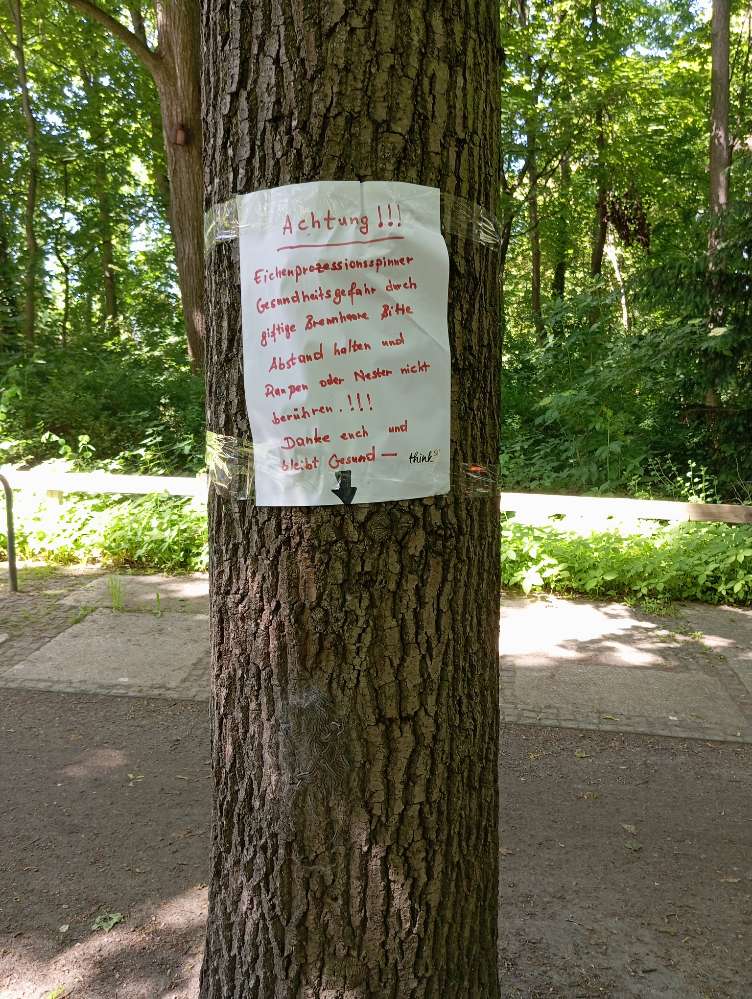 Achtung!!!
Eichenprozessionsspinner
Gesundheitsgefahr durch
giftige Brennhaare Bitte
Abstand halten und
Raupen oder Nester nicht
berühren.!!!
Danke euch und
bleibt Gesund — think